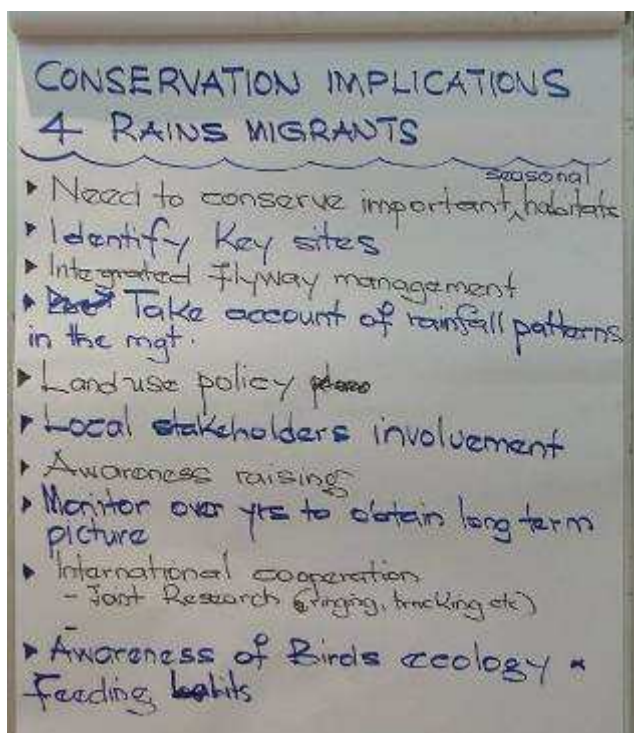 CONSERVATION IMPLICATIONS
4 RAINS MIGRANTS
seasonal
▸ Need to conserve important ‸ habitats
▸ Identify Key sites
▸ Integrated Flyway management
▸ Take account of rainfall patterns
in the mgt.
▸ Land use policy
▸ Local stakeholders involvement
▸ Awareness raising
▸ Monitor over yrs to obtain long term
picture
▸ International cooperation
- Joint Research (ringing, tracking etc)
-
▸ Awareness of Birds ecology &
Feeding habits